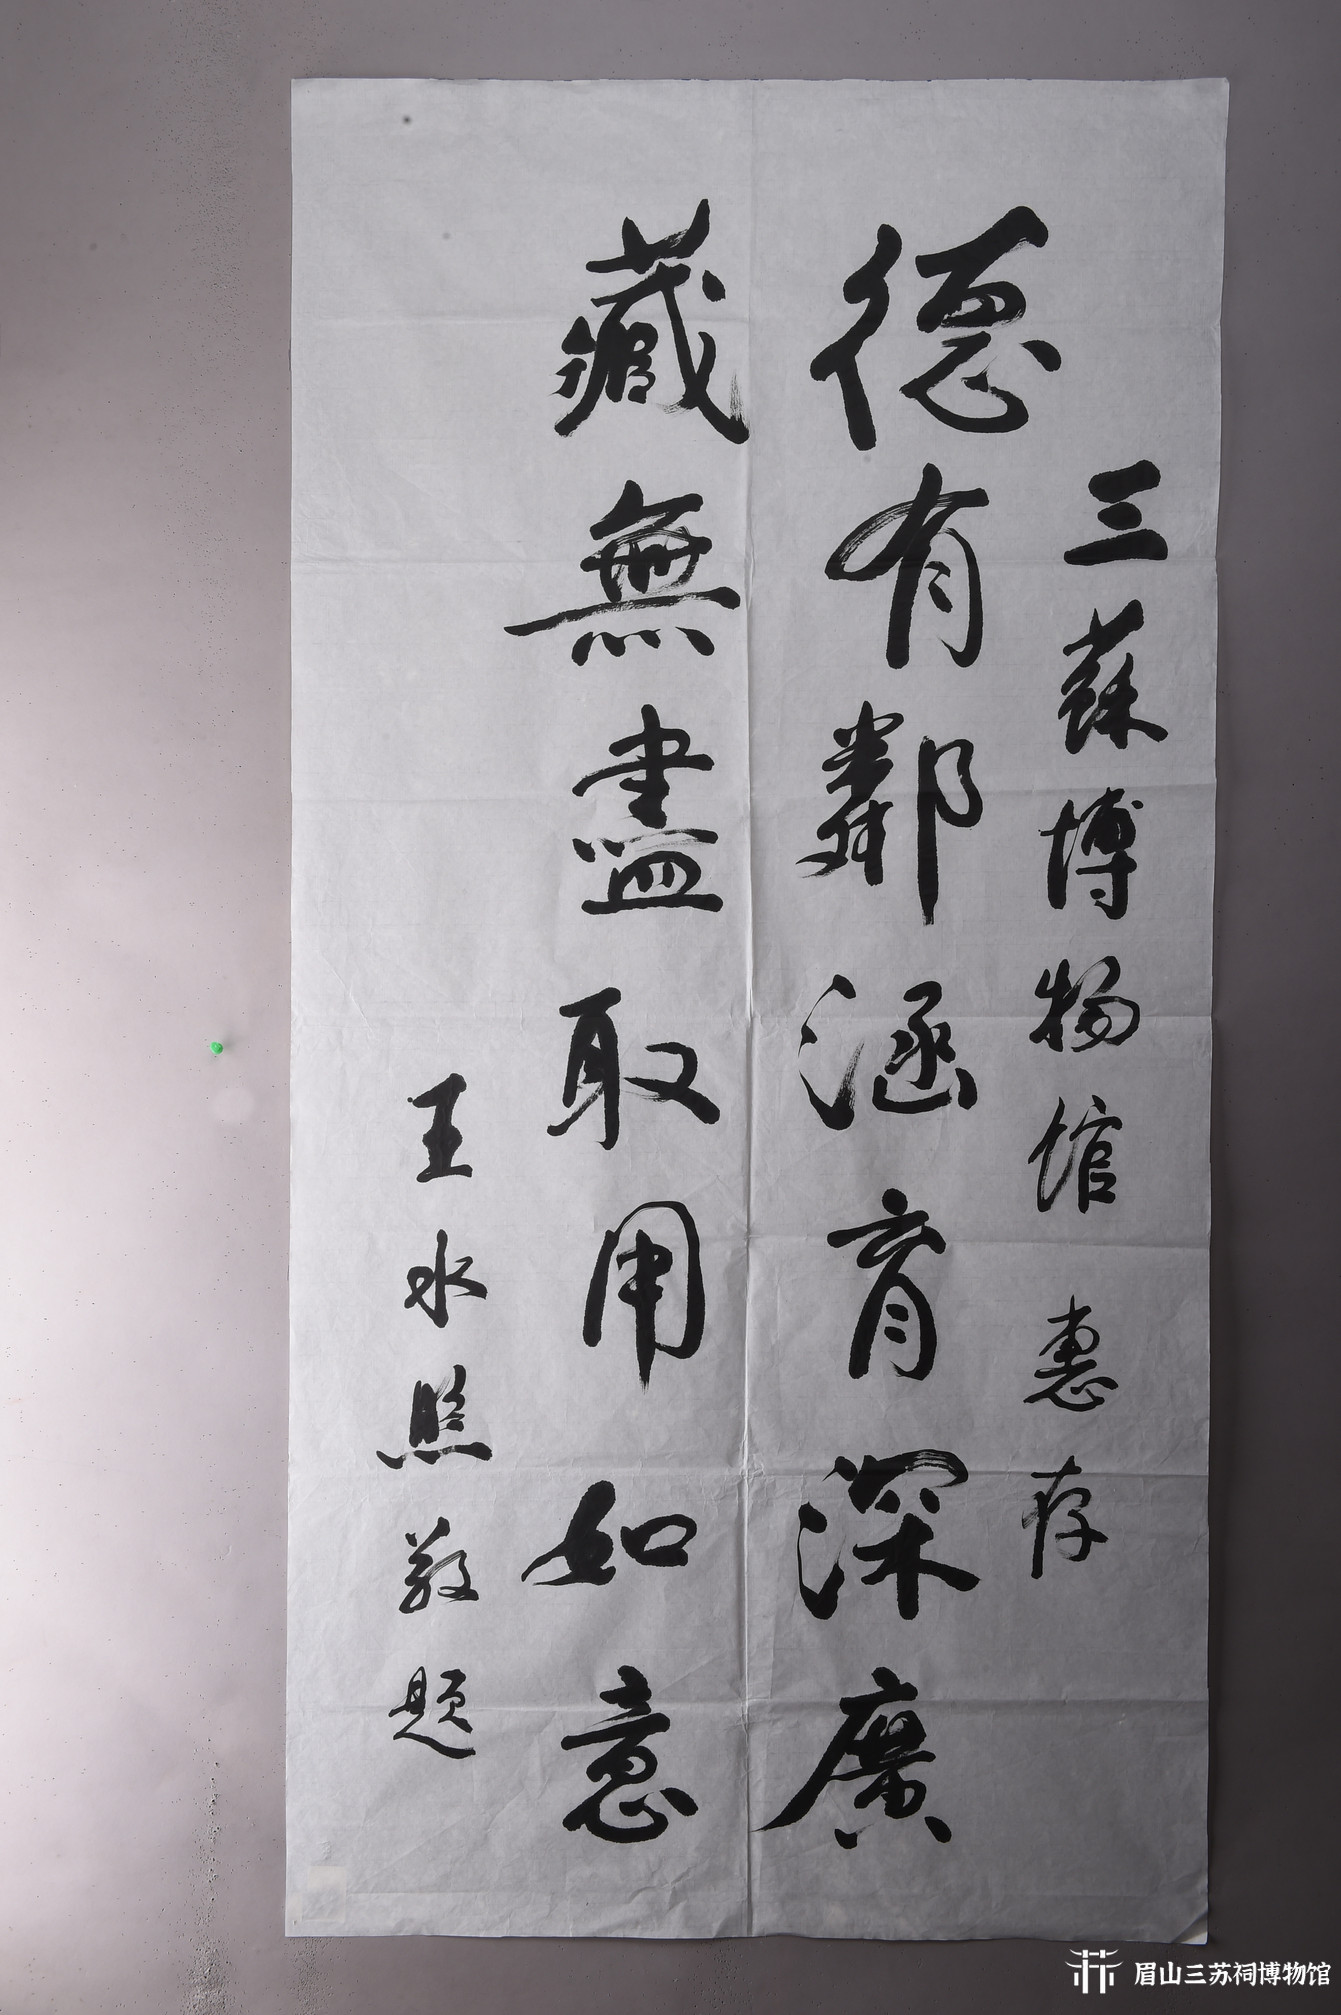 三蘇博物馆惠存
德有鄰涵育深廣
藏無盡取用如意
王水照敬題
眉山三苏祠博物馆